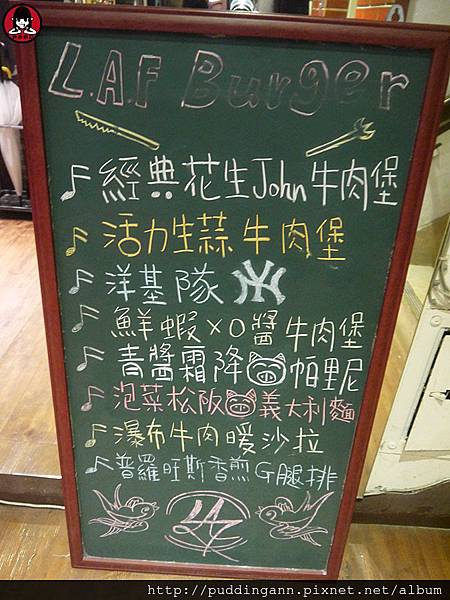 L.A.F Burger
經典花生John牛肉堡
活力生蒜牛肉堡
洋基隊 NY
鮮蝦XO醬牛肉堡
青醬霜降帕里尼
泡菜松阪義大利麵
瀑布牛肉暖沙拉
普羅旺斯香煎G腿排
http://puddingann.pixnet.net/album